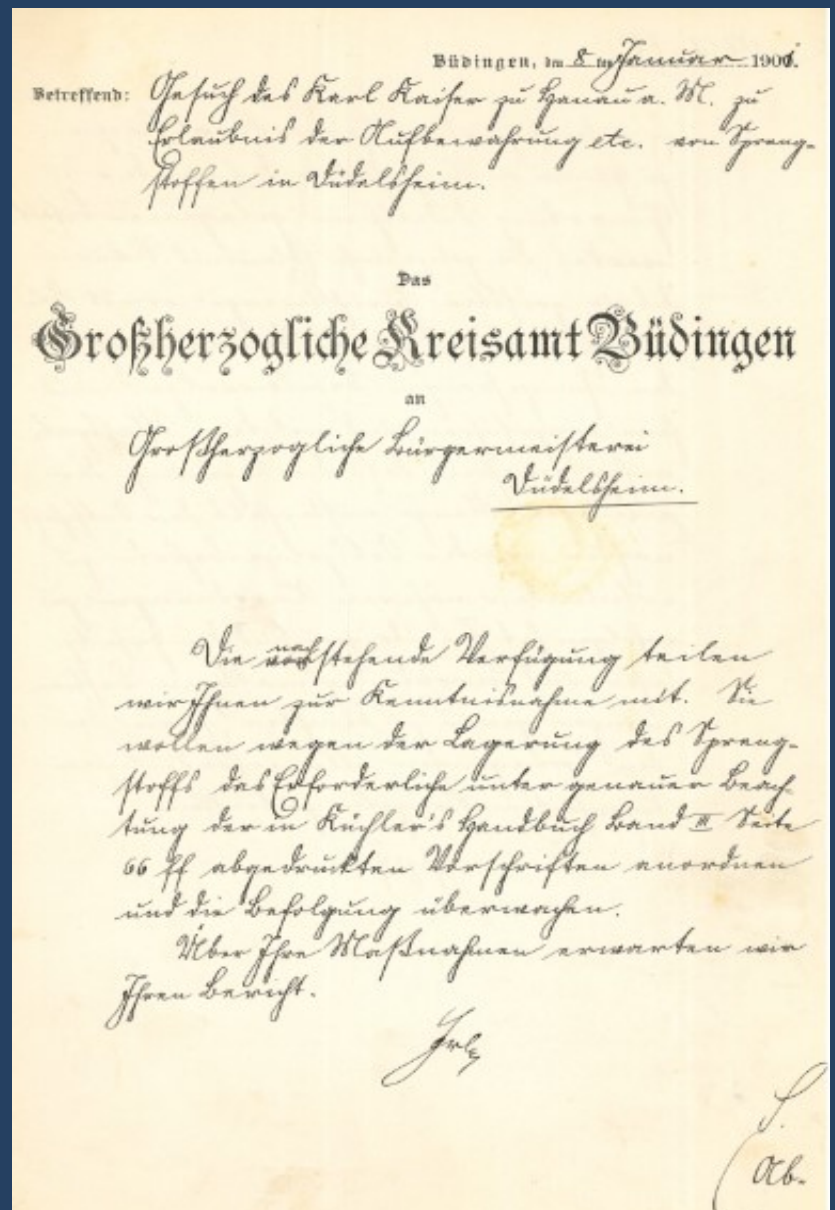 Büdingen, den 8 ten Januar 1901.
Betreffend: Gesuch des Karl Kaiser zu Hanau a. M. zu
Erlaubnis der Aufbewahrung etc. von Spreng-
stoffen in Düdelsheim.
Das
Großherzogliche Kreisamt Büdingen
an
Großherzogliche Bürgermeisterei
Düdelsheim.
Die nachstehende Verfügung teilen
wir Ihnen zur Kenntnisnahme mit. Sie
wollen wegen der Lagerung des Spreng-
stoffs das Erforderliche unter genauer Beach-
tung der in Küchler's Handbuch Band III Seite
66 ff abgedruckten Vorschriften anordnen
und die Befolgung überwachen.
Über Ihre Maßnahmen erwarten wir
Ihren Bericht.
Ab-